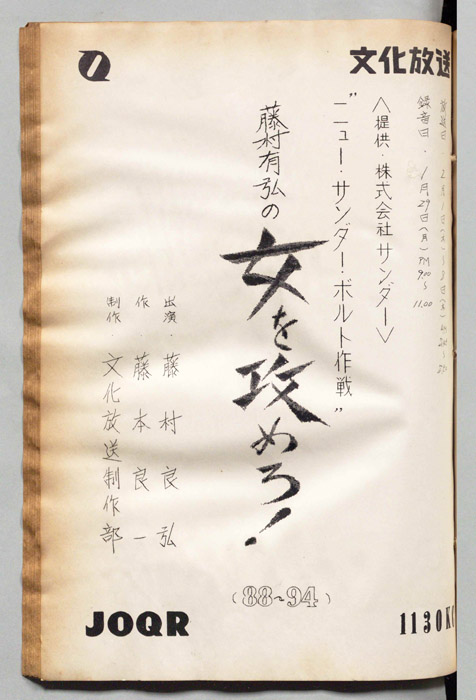 文化放送
放送日 2月1日(木)〜8日(木)
録音日・1月29日(月)PM 9:00〜11.00
〈提供・株式会社サンダー〉
"ニュー・サンダー・ボルト作戦"
藤村有弘の
女を攻めろ!
(88~94)
出演・藤村良弘
作・藤本良一
制作・文化放送制作部
JOQR
1130KC